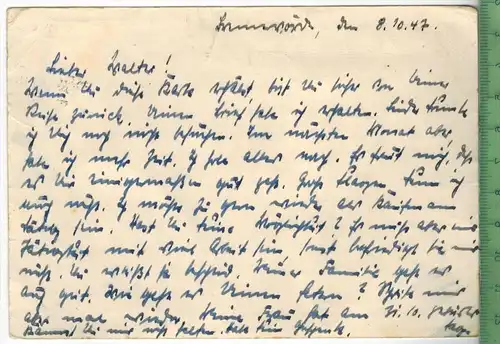 Bremervörde, den 8.10.47.
Lieber Walter!
Wenn Du diese Karte erhältst bist Du sicher von Deiner
Reise zurück. Deinen Brief habe ich erhalten. Leider konnte
ich Dich noch nicht besuchen. Im nächsten Monat aber
habe ich mehr Zeit. Ich hole alles nach. Es freut mich, daß
es Dir einigermaßen gut geht. Große klagen kann ich
auch nicht. Ich möchte zu gern wieder als Kaufmann
tätig sein. Hast Du keine Möglichkeit? Es muß aber eine
Tätigkeit mit viel Arbeit sein sonst befriedigt sie mich
nicht. Du weißt ja Bescheid. Meiner Familie geht es
auch gut. Wie geht es Deinen? Schreibe mir
aber mal wieder. Meine Frau hat am 31.10. Geburts-
tag.
Kannst Du mir nicht helfen. Habe kein Geschenk.